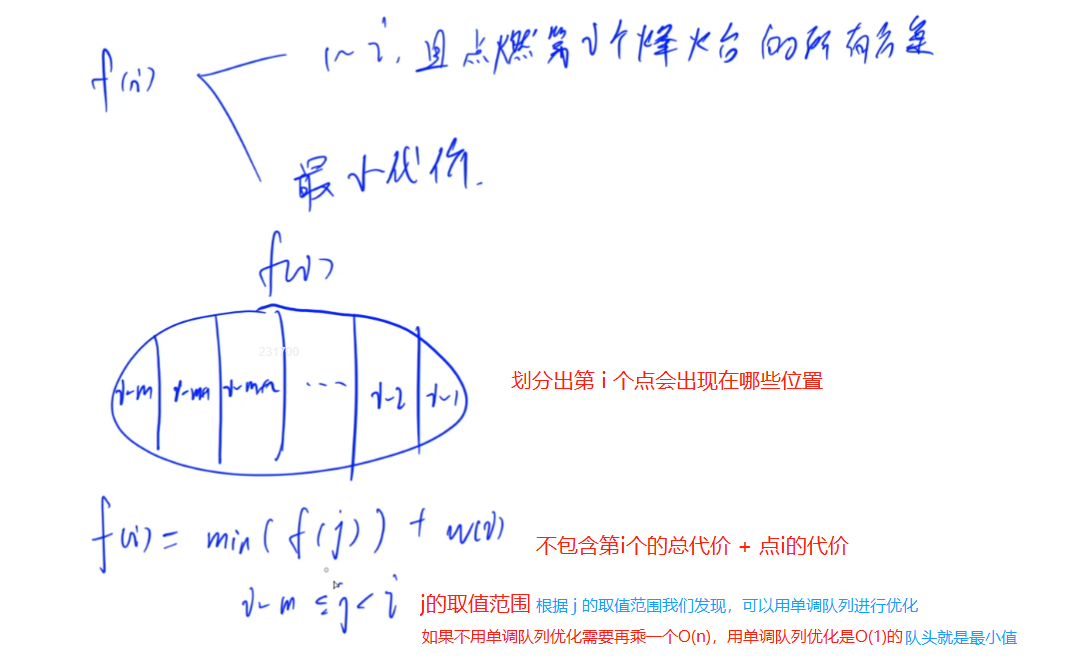 f(i)
1~i，且点燃第i个烽火台的所有方案
最小代价.
f(i)
231700
i-m
i-m+1
i-m+2
...
i-2
i-1
划分出第 i 个点会出现在哪些位置
f(i) = min( f(j) ) + w(i)
不包含第i个的总代价 + 点i的代价
i-m ≤ j < i
j的取值范围 根据 j 的取值范围我们发现，可以用单调队列进行优化
如果不用单调队列优化需要再乘一个O(n)，用单调队列优化是O(1)的 队头就是最小值